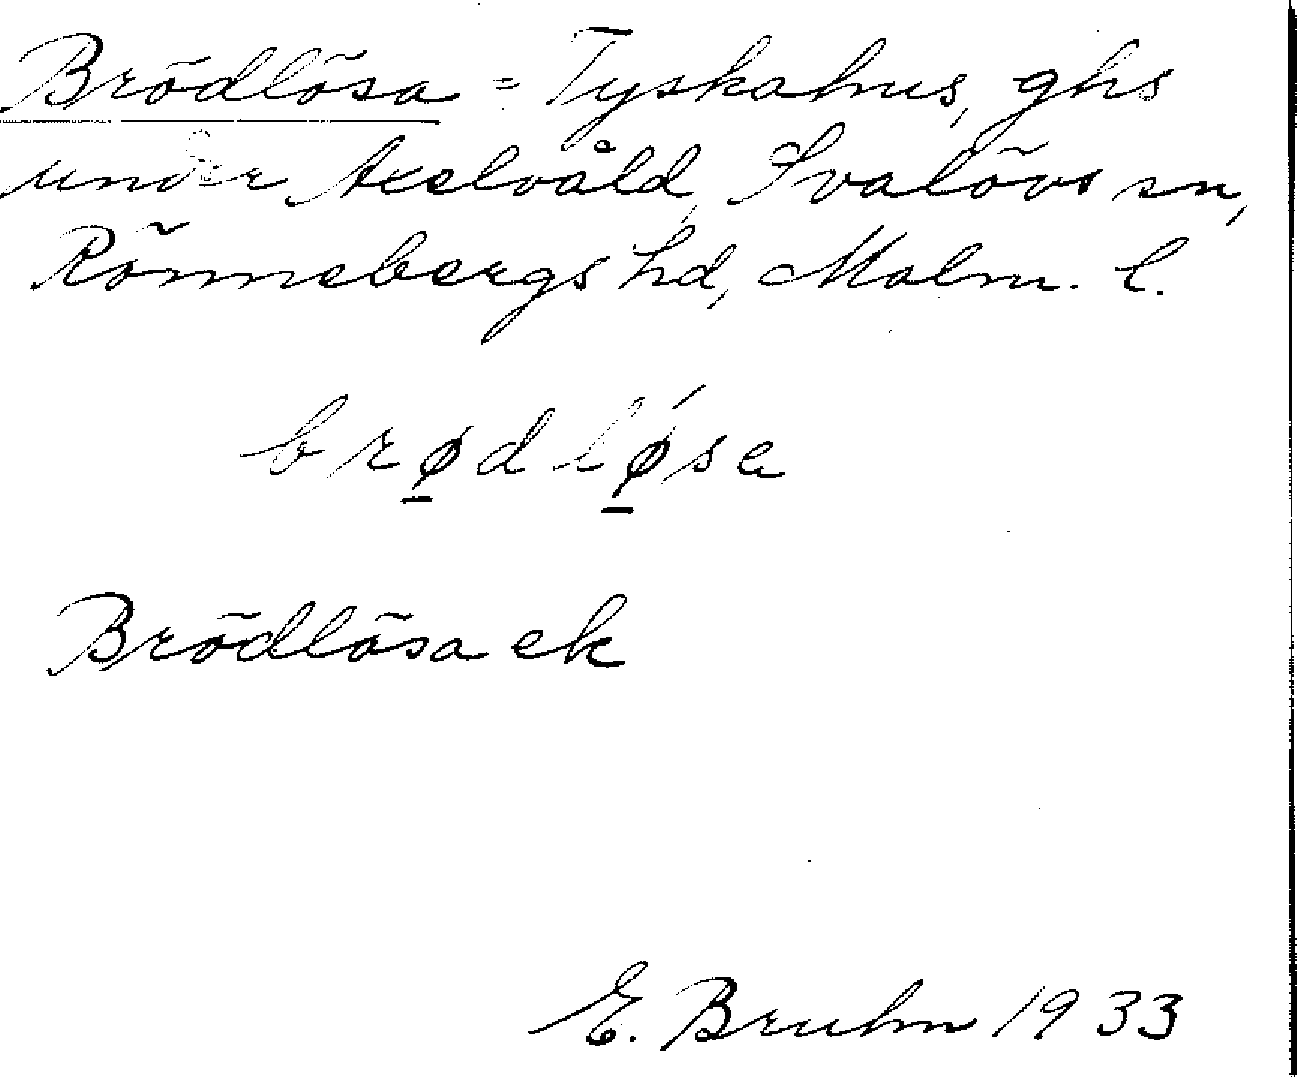 Brödlösa = Tyskahus, ghs
under Axelvåld, Svalövs sn,
Rönnebergs hd, Malm. l.
brø̱dlǿ̱sa
Brödlösa ek
E. Bruhn 1933